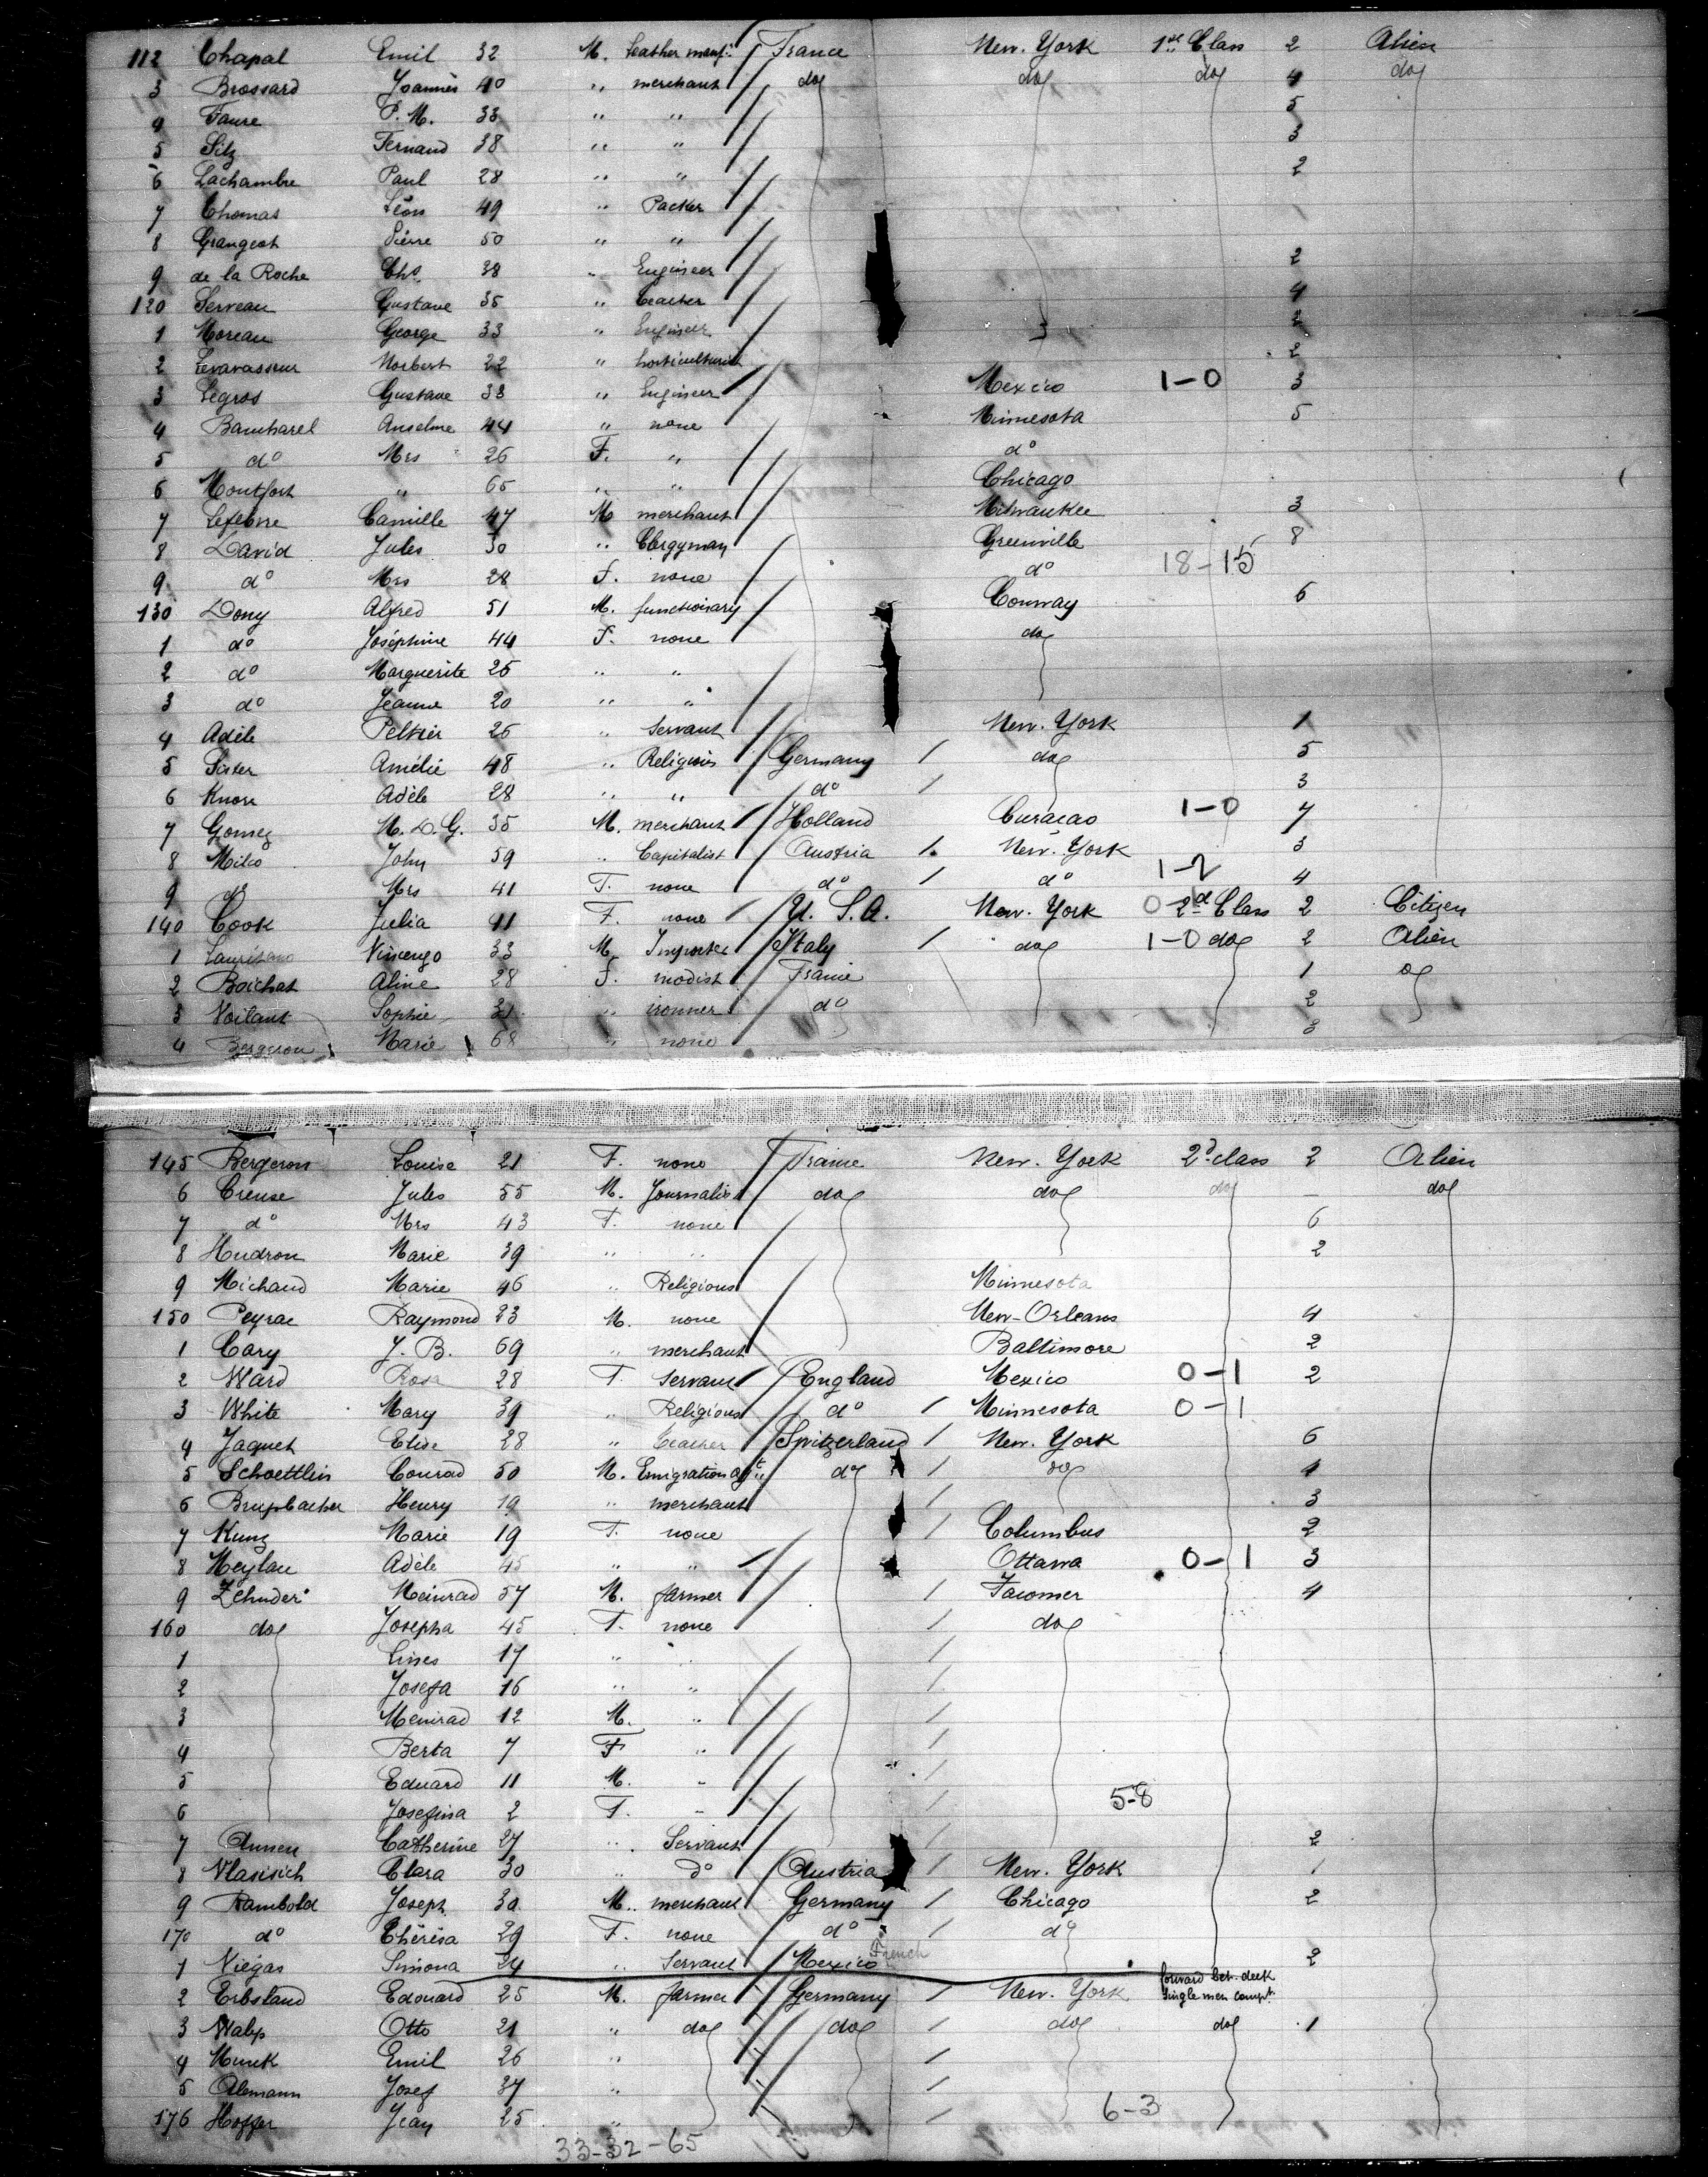 112 Chapal Emil 32 M. Leather manf. France New. York 1st Class 2 Alien
3 Brossard Joannès 40 " merchant do do do 4 do
4 Faure P. M. 33 " " 5
5 Silz Fernand 38 " " 3
6 Lachambre Paul 28 " " 2
7 Thomas Léon 49 " Packer
8 Grangeot Pierre 50 " "
9 de la Roche Chs 38 " Engineer 2
120 Serveau Gustave 35 " teacher 4
1 Moreau George 33 " Engineer 2
2 Levavasseur Norbert 22 " horticulturist 2
3 Legros Gustave 33 " Engineer Mexico 1-0 3
4 Bamharel Anselme 44 " none Minnesota 5
5 do Mrs 26 F. " do
6 Montfort " 65 " " Chicago
7 Lefebvre Camille 47 M merchant Milwaukee 3
8 David Jules 30 " Clergyman Greenville 8
9 do Mrs 28 F. none do 18-15
130 Dony Alfred 51 M. functionary Conway 6
1 do Joséphine 44 F. none do
2 do Marguerite 25 " "
3 do Jeanne 20 " "
4 Adèle Peltier 26 " Servant New. York 1
5 Sater Amélie 48 " Religious Germany / do 5
6 Knorr Adèle 28 " " do / 3
7 Gomez M. D. G. 35 M. merchant Holland Curaçao 1-0 7
8 Milio John 59 " Capitalist Austria / New. York 3
9 do Mrs 41 F. none do / do 1-2 4
140 Cook Julia 41 F. none U. S. A. New. York 0 2d Class 2 Citizen
1 Lauritano Vincenzo 33 M. Importer Italy / do 1-0 do 2 Alien
2 Boichat Aline 28 F. modist France 1 do
3 Voilant Sophie 31 " ironner do 2
4 Bergeron Marie 68 " none 3
145 Bergeron Louise 21 F. none France New. York 2d class 2 Alien
6 Creuse Jules 55 M. Journalist do do do — do
7 do Mrs 43 F. none 6
8 Hudron Marie 39 " " 2
9 Michaud Marie 46 " Religious Minnesota
150 Peyrac Raymond 23 M. none New-Orleans 4
1 Cary J. B. 69 " merchant Baltimore 2
2 Ward Rosa 28 F. Servant England Mexico 0-1 2
3 White Mary 39 " Religious do / Minnesota 0-1
4 Jaquet Elise 28 " teacher Switzerland / New. York 6
5 Schoettlin Conrad 50 M. Emigration agt do / do 4
6 Brupbacher Henry 19 " merchant / 3
7 Kunz Marie 19 F. none / Columbus 2
8 Meylan Adèle 45 " " Ottawa 0-1 3
9 Zehnder Meinrad 57 M. farmer / Tacomer 4
160 do Josepha 45 F. none / do
1 Lines 17 " " /
2 Josefa 16 " " /
3 Meinrad 12 M. " /
4 Berta 7 F " /
5 Eduard 11 M. " /
6 Josefina 2 F. " / 5-8
7 Annen Catherine 27 " Servant / 2
8 Vlasisich Clara 30 " do Austria / New. York 1
9 Rambold Joseph 30 M. merchant Germany / Chicago 2
170 do Thérésa 29 F. none do / do
1 Niegas Simona 24 " Servant Mexico French 2
2 Erbsland Edouard 25 M. farmer Germany / New. York forward bet. deck single men compt.
3 Walys Otto 21 " do do / do do 1
4 Munk Emil 26 " /
5 Alemann Josef 37 " /
176 Hoffer Jean 25 " / 6-3
33-32-65